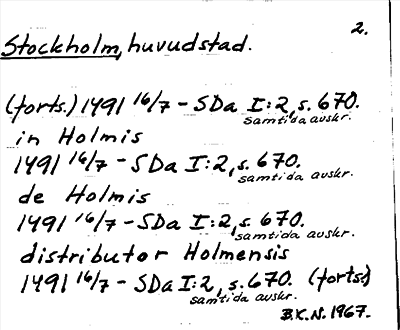 2.
Stockholm, huvudstad.
(forts.) 1491 16/7 - SDa I:2, s. 670.
samtida avskr.
in Holmis
1491 16/7 - SDa I:2, s. 670.
samtida avskr.
de Holmis
1491 16/7 - SDa I:2, s. 670.
samtida avskr.
distributor Holmensis
1491 16/7 - SDa I:2, s. 670. (forts.)
samtida avskr.
B.K.N. 1967.